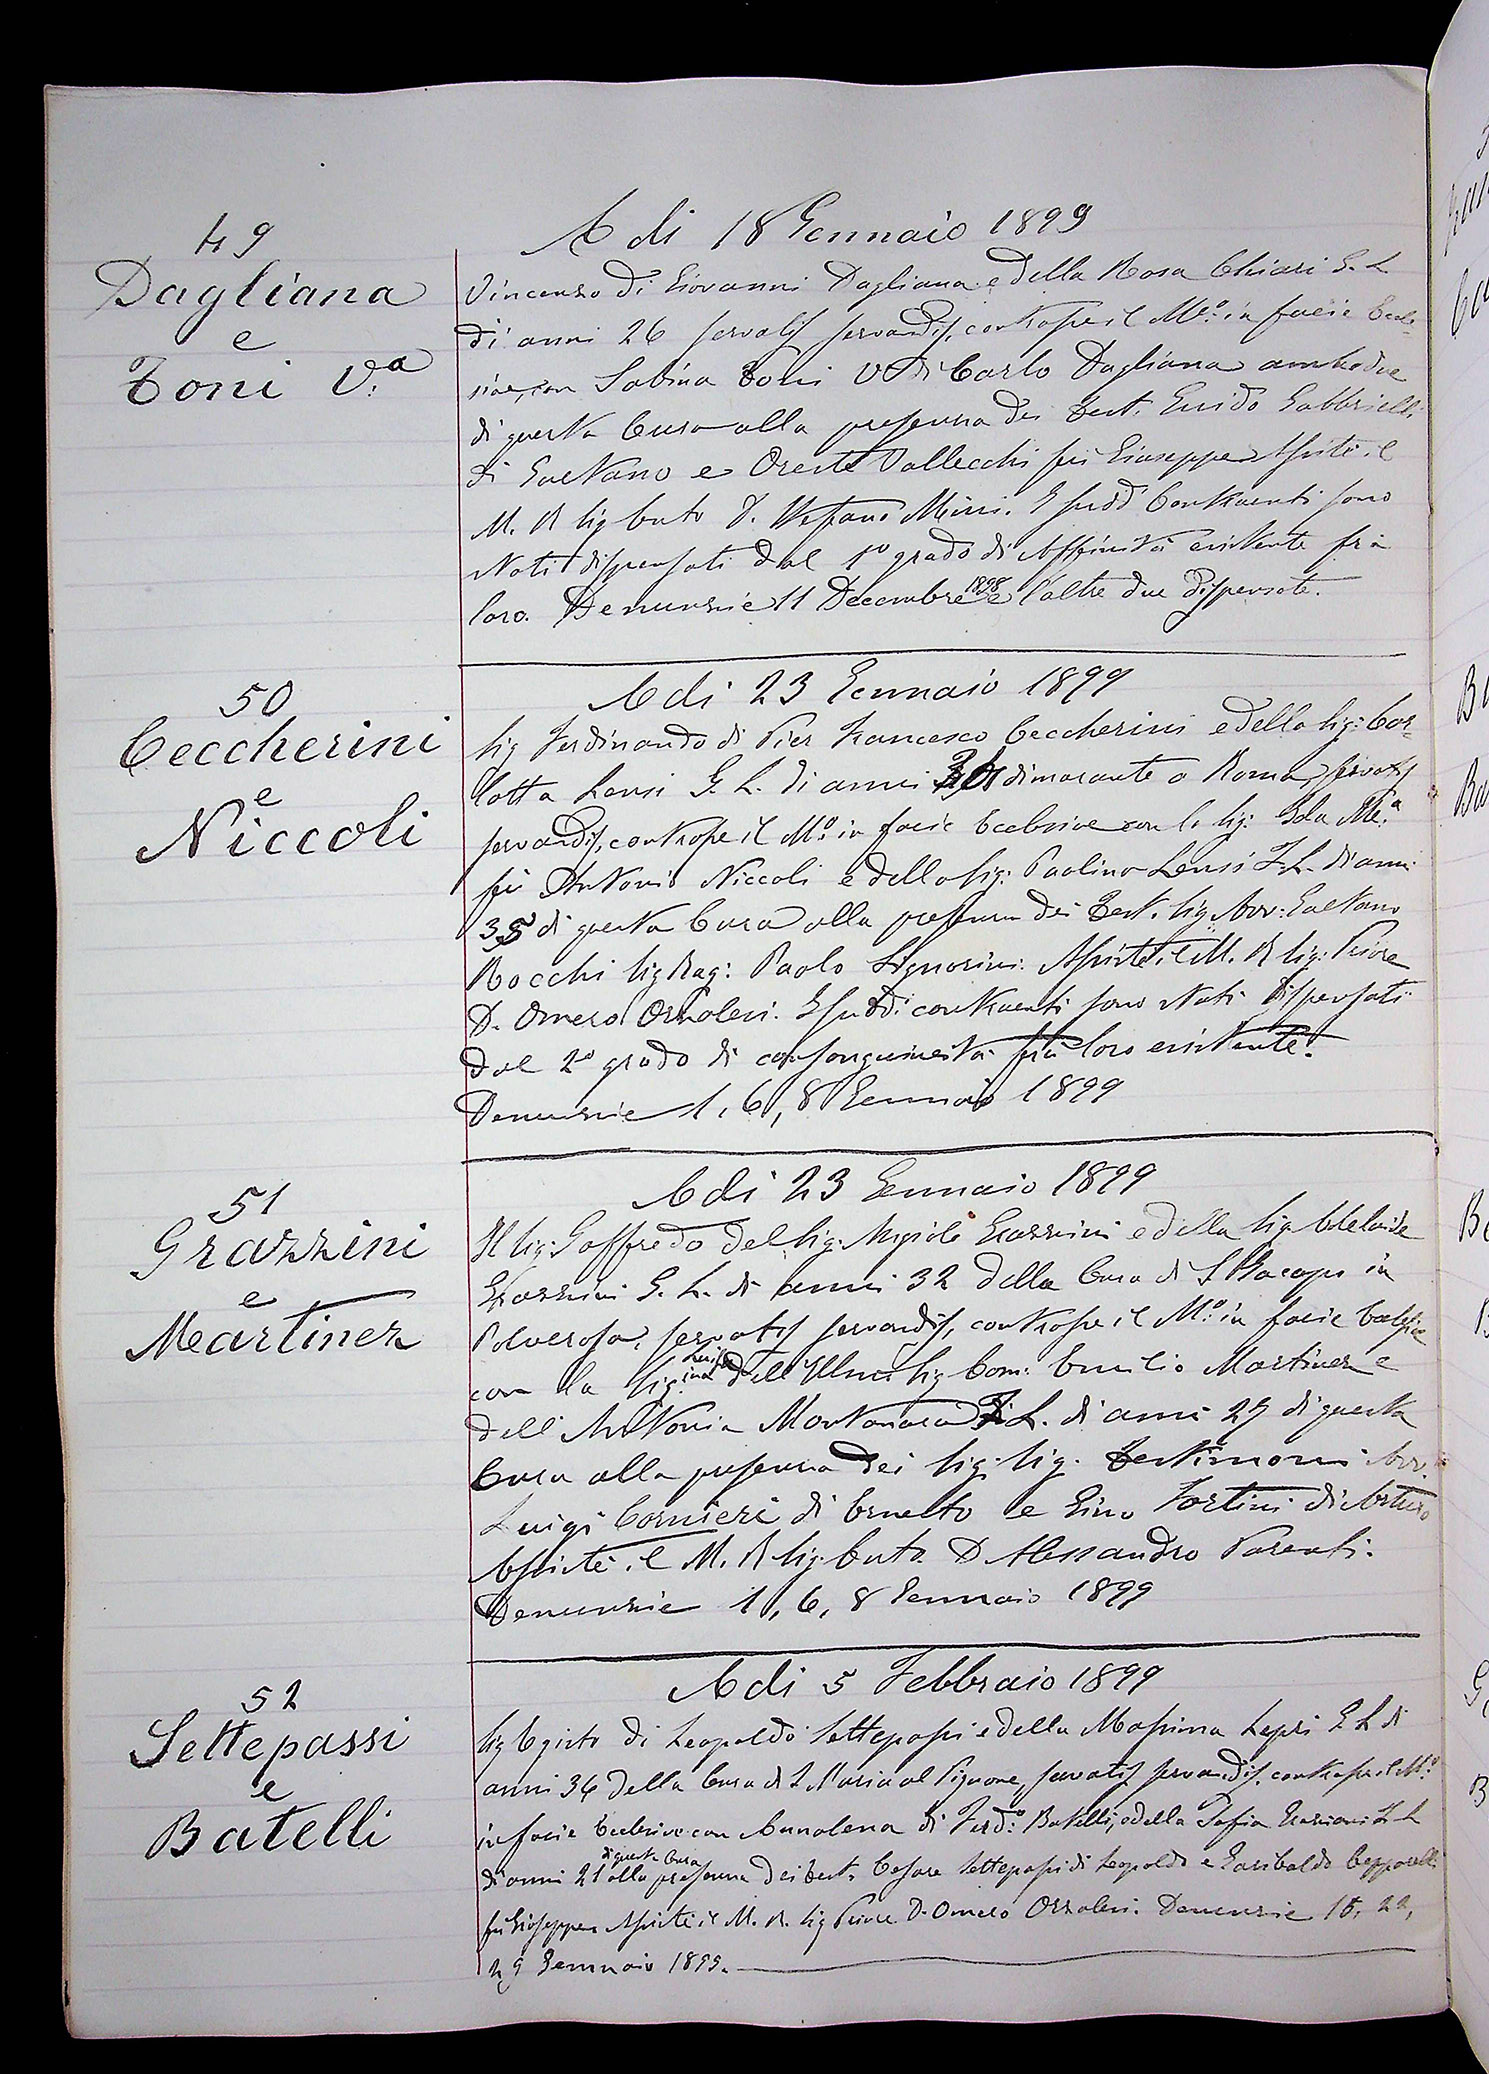 49
Dagliana
e
Toni V.a
A di 18 Gennaio 1899
Vincenzo di Giovanni Dagliana e della Rosa Chiari G. L
di anni 26 servatis servandis, contrasse il M.o in facie Eccle-
siae, con Sabina Toni Va di Carlo Dagliana ambedue
di questa Cura alla presenza dei Test. Guido Gabbrielli
di Gaetano e Oreste Vallecchi fu Giuseppe Assistè il
M. R Sig Curato D. Stefano I sudd Contraenti sono
stati dispensati dal 1o grado di Affinità esistente fra
loro. Denunzie 11 Decembre 1898 e l'altre due Dispensate.
50
Ceccherini
e
Niccoli
A di 23 Gennaio 1899
Sig Ferdinando di Pier Francesco Ceccherini e della Sig: Car-
lotta Lensi G. L. di anni dimorante a Roma, servatis
servandis, contrasse il M.o in facie Ecclesiae con la Sig: Ida Me.a
fu Antonio Niccoli e della Sig: Paolina Lensi F. L. di anni
35 di questa Cura alla presenza dei Test. Sig Avv: Gaetano
Rocchi Sig Rag: Paolo Signorini. Assistè il M. R Sig: Priore
D. Omero Orzalesi. I suddi contraenti sono stati dispensati
dal 2o grado di consanguineità fra loro esistente.
Denunzie 1, 6, 8 Gennaio 1899
51
Grazzini
e
Martinez
A di 23 Gennaio 1899
Il Sig: Goffredo del Sig: Grazzini e della Sig Adelaide
Grazzini G. L. di anni 32 della Cura di S Jacopo in
Polverosa, servatis servandis, contrasse il M.o in facie Ecclesiae
con la Sig.ina Luisa dell'Illmo Sig Com: Emilio Martinez e
dell'Antonia Montanara F. L. di anni 27 di questa
Cura alla presenza dei Sig: Sig. Testimoni Avv.
Luigi Cornieri di Ernesto e Gino Fortini di Arturo
Assistè il M. R Sig. Curto D Alessandro Parenti.
Denunzie 1, 6, 8 Gennaio 1899
52
Settepassi
e
Batelli
A di 5 Febbraio 1899
Sig Egisto di Leopoldo Settepassi e della Massima Lepri G L di
anni 36 della Cura di S Maria al Pignone, servatis servandis, contrasse il M.o
in facie Ecclesiae con Annalena di Ferd.o Batelli, e della Sofia Graziani F L
di anni 21 di questa Cura alla presenza dei Test. Cesare Settepassi di Leopoldo e Garibaldo Cepparelli
fu Giuseppe Assistè il M. R. Sig Priore D. Omero Orzalesi. Denunzie 15, 22,
29 Gennaio 1899.